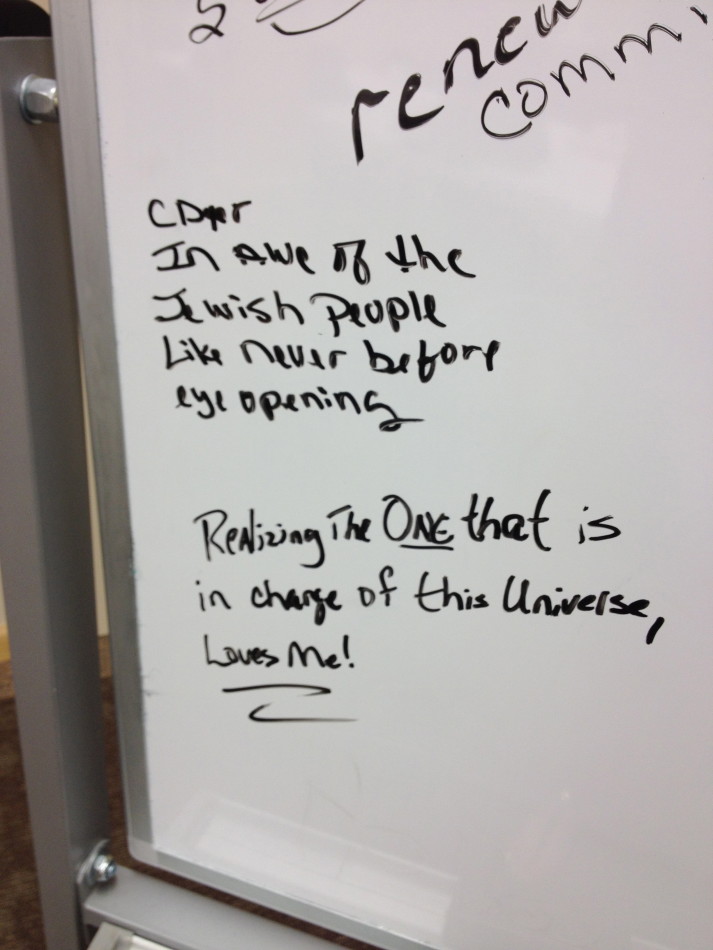 renew
comm
In Awe of the
Jewish People
Like never before
eye opening
Realizing The ONE that is
in charge of this Universe,
Loves Me!